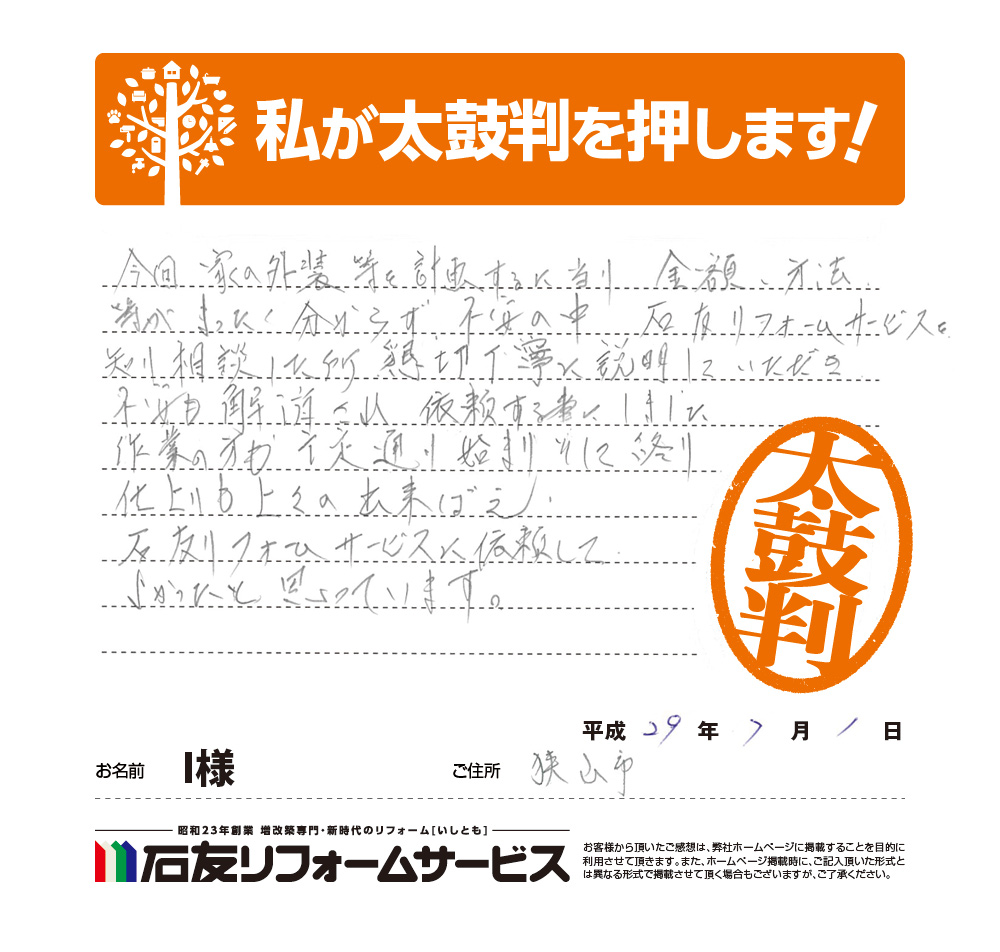 私が太鼓判を押します!
今回 家の外装等を計画するに当り 金額、方法
等がまったく分からず 不安の中 石友リフォームサービスを
知り相談した所 懇切丁寧に説明していただき
不安も解消され 依頼する事にしました
作業の方も 予定通り始まり そして終り
仕上りも上々の出来ばえ、
石友リフォームサービスに依頼して
よかったと思っています。
太鼓判
平成 29 年 7 月 1 日
お名前 I様 ご住所 狭山市
昭和23年創業 増改築専門・新時代のリフォーム[いしとも]
石友リフォームサービス
お客様から頂いたご感想は、弊社ホームページに掲載することを目的に
利用させて頂きます。また、ホームページ掲載時に、ご記入頂いた形式と
は異なる形式で掲載させて頂く場合もございますが、ご了承ください。